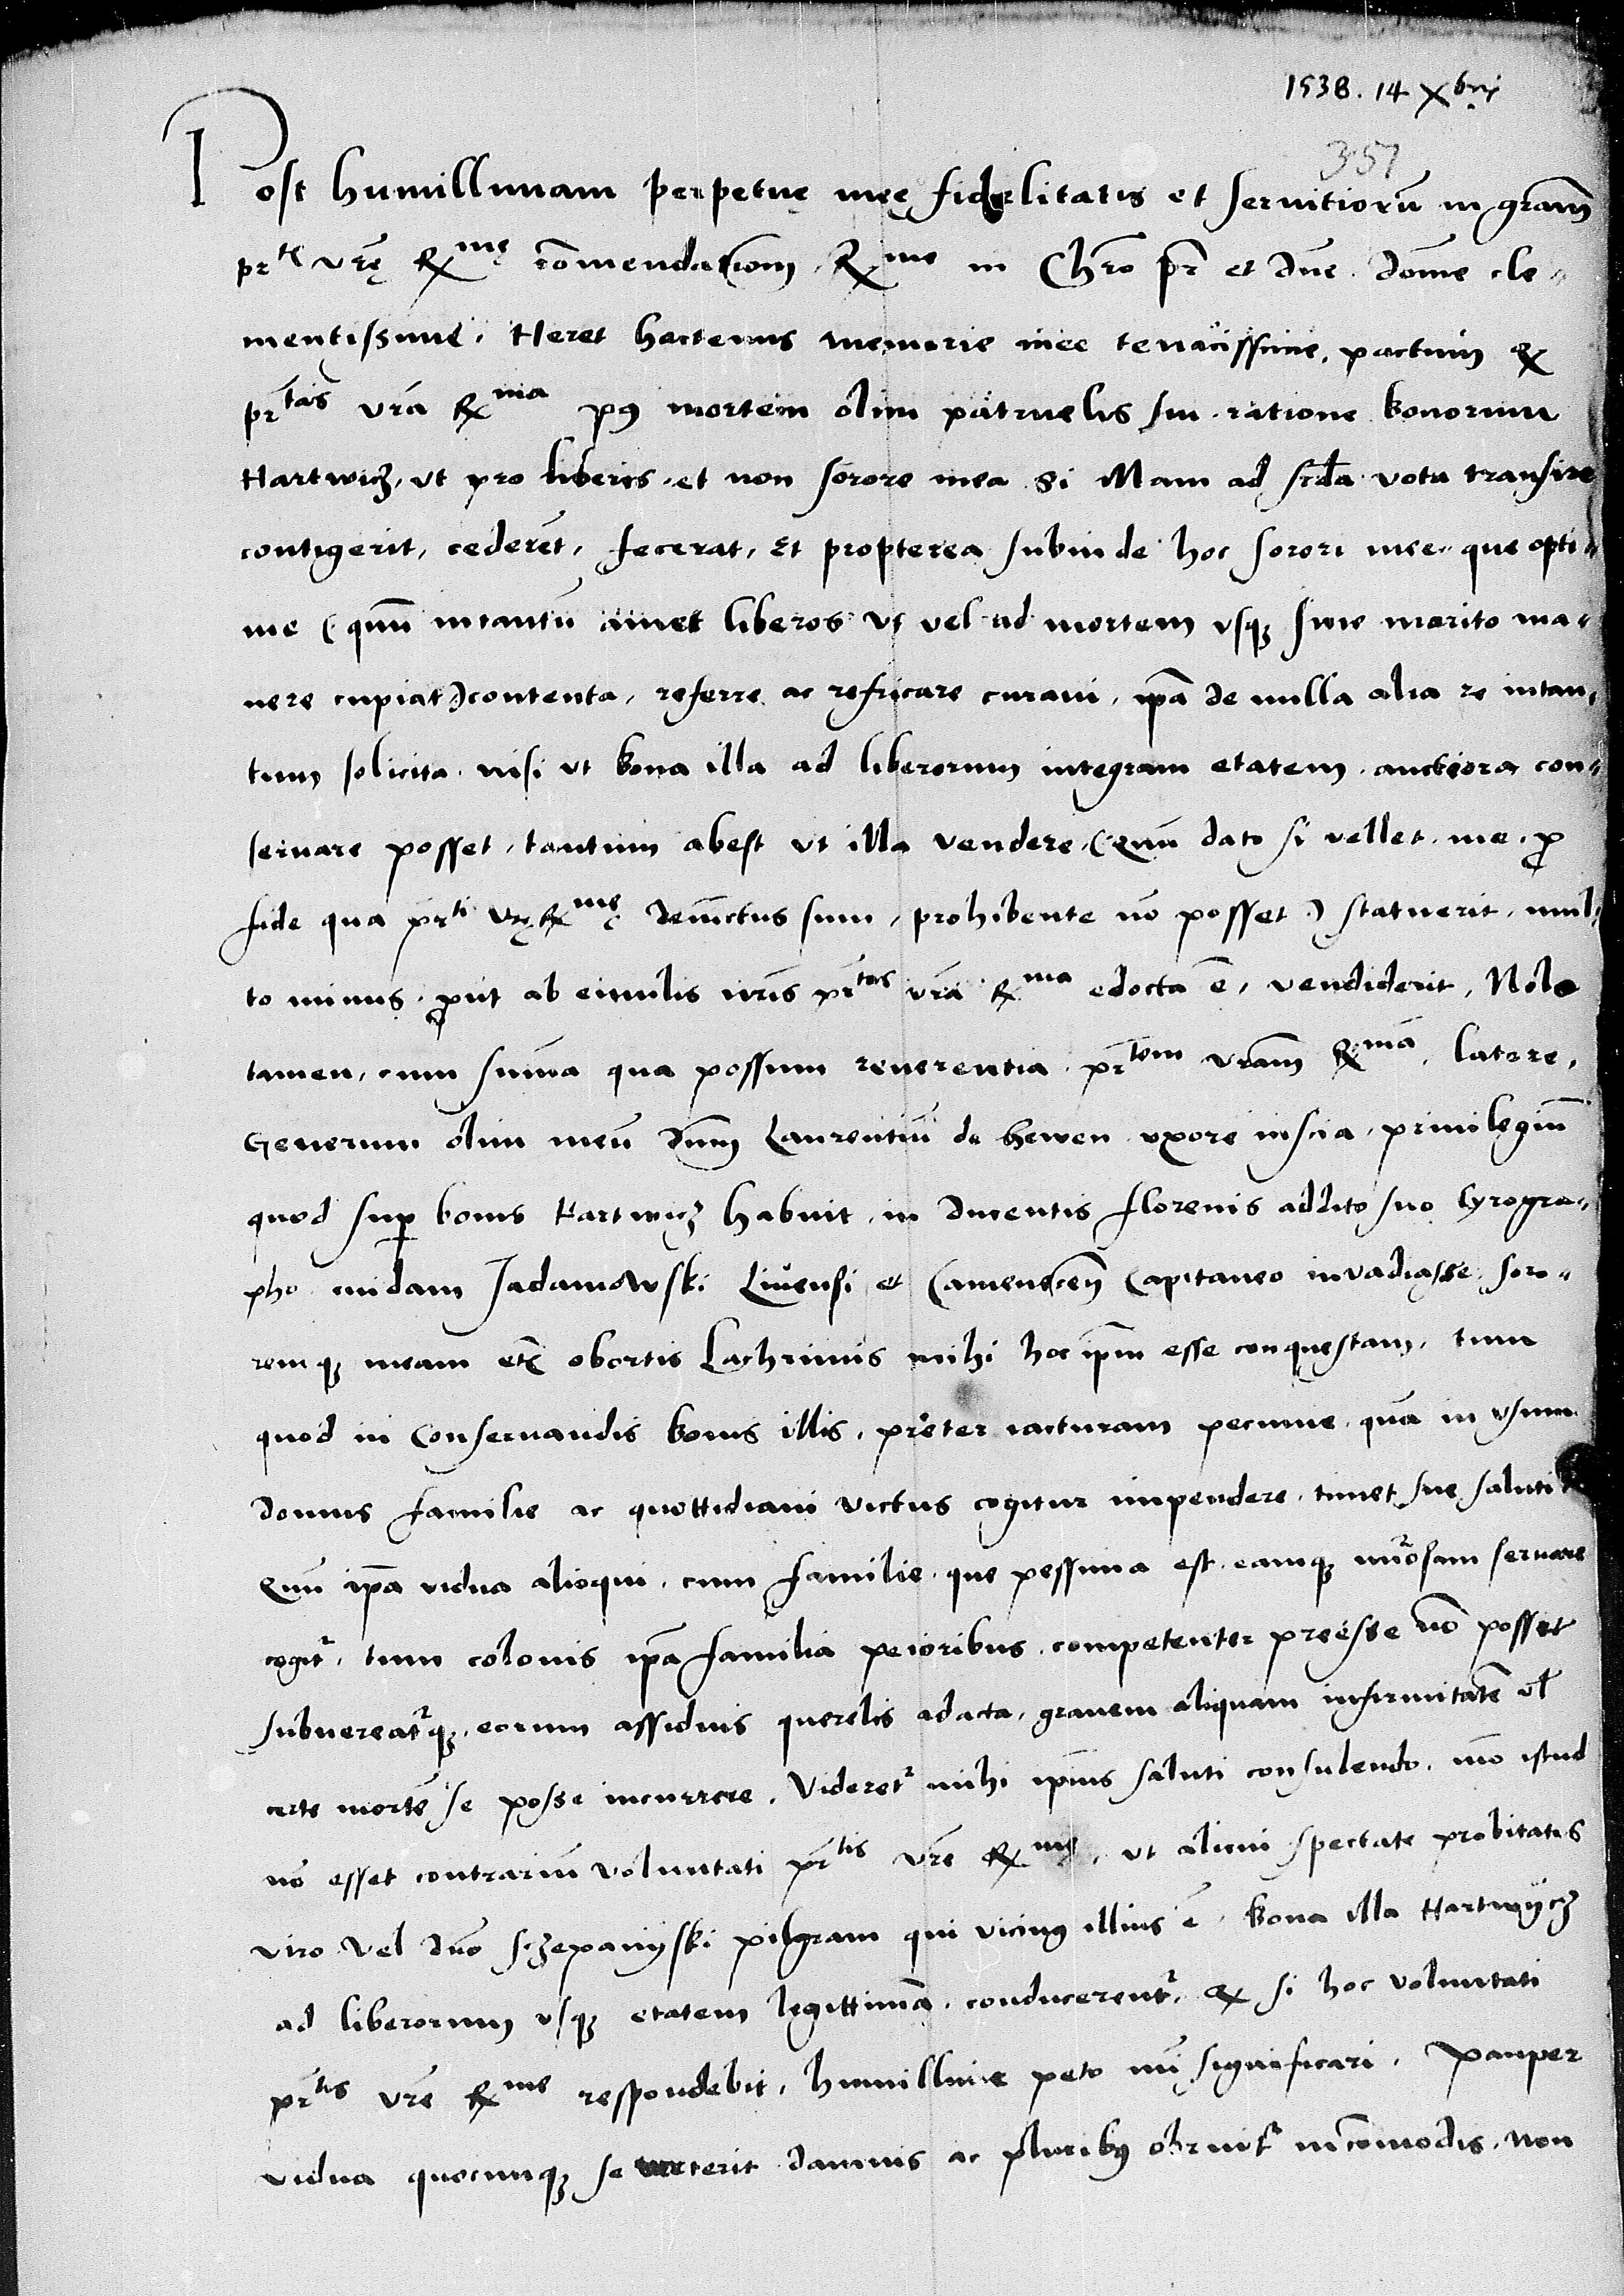 1538. 14 Xbris
357
Post humillimam perpetuę meę fidelitatis et servitiorũ in gram̃
prtis vrę Rmę com̃endationem. Rme in Chro pr et dne. dom̃e cle-
mentissime. Heret hactenus memorie mee tenacissime, pactum qd
prtas vrã Rma post mortem olim patruelis sui ratione bonorum
Hartwicz, ut pro liberis, et non sorore mea si illam ad scda vota transire
contigerit, cederẽt, fecerat, Et propterea subinde hoc sorori mee que opti-
me (quũ intantũ amet liberos ut vel ad mortem usqz sine marito ma-
nere cupiat) contenta, referre ac refricare curavi, ipã de nulla alia re intan-
tum solicita nisi ut bona illa ad liberorum integram etatem auctiora con-
servare posset, tantum abest ut illa vendere, (quũ dato si vellet me, pro
fide qua prti vrę Rmę devinctus sum, prohibente nõ posset) statuerit, mul-
to minus prout ab emulis nris prtas vrã Rma edocta ẽ, vendiderit, Nolo
tamen, cum sum̃a qua possum reverentia prtem vram̃ Rmã, latere,
Generum olim meũ dnm̃ Laurentiũ de Hewen uxore inscia, privilegiũ
quod super bonis Hartwicz habuit, in ducentis florenis addito suo cyrogra-
pho cuidam Jadamowski Livensi et Camenecen̄ Capitaneo invadiasse, soro-
remqz meam etx obortis Lachrimis mihi hoc ipm̃ esse conquestam, tum
quod in conservandis bonis illis, preter iacturam pecunie quã in usum
domus familie ac quottidiani victus cogitur impendere, timet sue saluti
Quũ ipã vidua alioqui, cum familie que pessima est eamqz nũrosam servare
cogitr, tum colonis ipã familia peioribus competenter preesse nõ posset
subvereatrqz, eorum assiduis querelis adacta, gravem aliquam infirmitatẽ vl
certe mortẽ se posse incurrere. Videretr mihi ipius saluti consulendo, mõ istud
nõ esset contrariũ voluntati prtis vre Rmę, ut alicui spectate probitatis
viro vel dno Sczepanÿski pilgram qui vicinus illius ẽ bona illa Hartwÿcz
ad liberorum usqz etatem legittimã conducerentr, qd si hoc voluntati
prtis vre Rme respondebit, humillime peto mi significari. Pauper
vidua quocunqz se verterit damnis ac pluribus obruitr incom̃odis, non